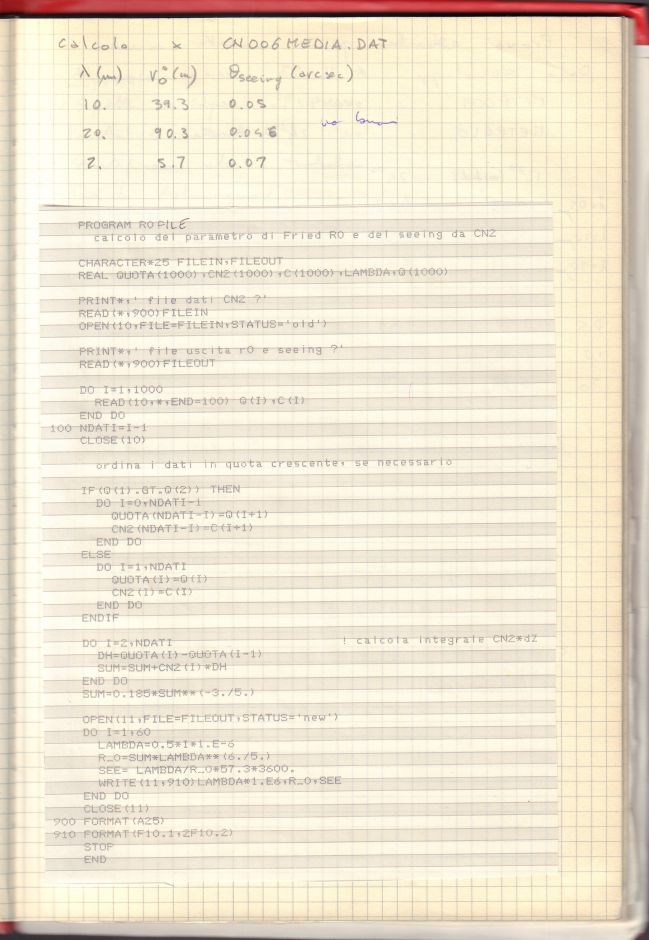 Calcolo x CN006MEDIA.DAT
λ (μm) r₀ (m) θseeing (arcsec)
10. 39.3 0.05
20. 90.3 0.046
2. 5.7 0.07
PROGRAM ROFILE
calcolo del parametro di Fried R0 e del seeing da CN2
CHARACTER*25 FILEIN,FILEOUT
REAL QUOTA(1000),CN2(1000),C(1000),LAMBDA,Q(1000)
PRINT*,' file dati CN2 ?'
READ(*,900)FILEIN
OPEN(10,FILE=FILEIN,STATUS='old')
PRINT*,' file uscita r0 e seeing ?'
READ(*,900)FILEOUT
DO I=1,1000
READ(10,*,END=100) Q(I),C(I)
END DO
100 NDATI=I-1
CLOSE(10)
ordina i dati in quota crescente, se necessario
IF(Q(1).GT.Q(2)) THEN
DO I=0,NDATI-1
QUOTA(NDATI-I)=Q(I+1)
CN2(NDATI-I)=C(I+1)
END DO
ELSE
DO I=1,NDATI
QUOTA(I)=Q(I)
CN2(I)=C(I)
END DO
ENDIF
DO I=2,NDATI ! calcola integrale CN2*dZ
DH=QUOTA(I)-QUOTA(I-1)
SUM=SUM+CN2(I)*DH
END DO
SUM=0.185*SUM**(-3./5.)
OPEN(11,FILE=FILEOUT,STATUS='new')
DO I=1,60
LAMBDA=0.5*I*1.E-6
R_0=SUM*LAMBDA**(6./5.)
SEE= LAMBDA/R_0*57.3*3600.
WRITE(11,910)LAMBDA*1.E6,R_0,SEE
END DO
CLOSE(11)
900 FORMAT(A25)
910 FORMAT(F10.1,2F10.2)
STOP
END